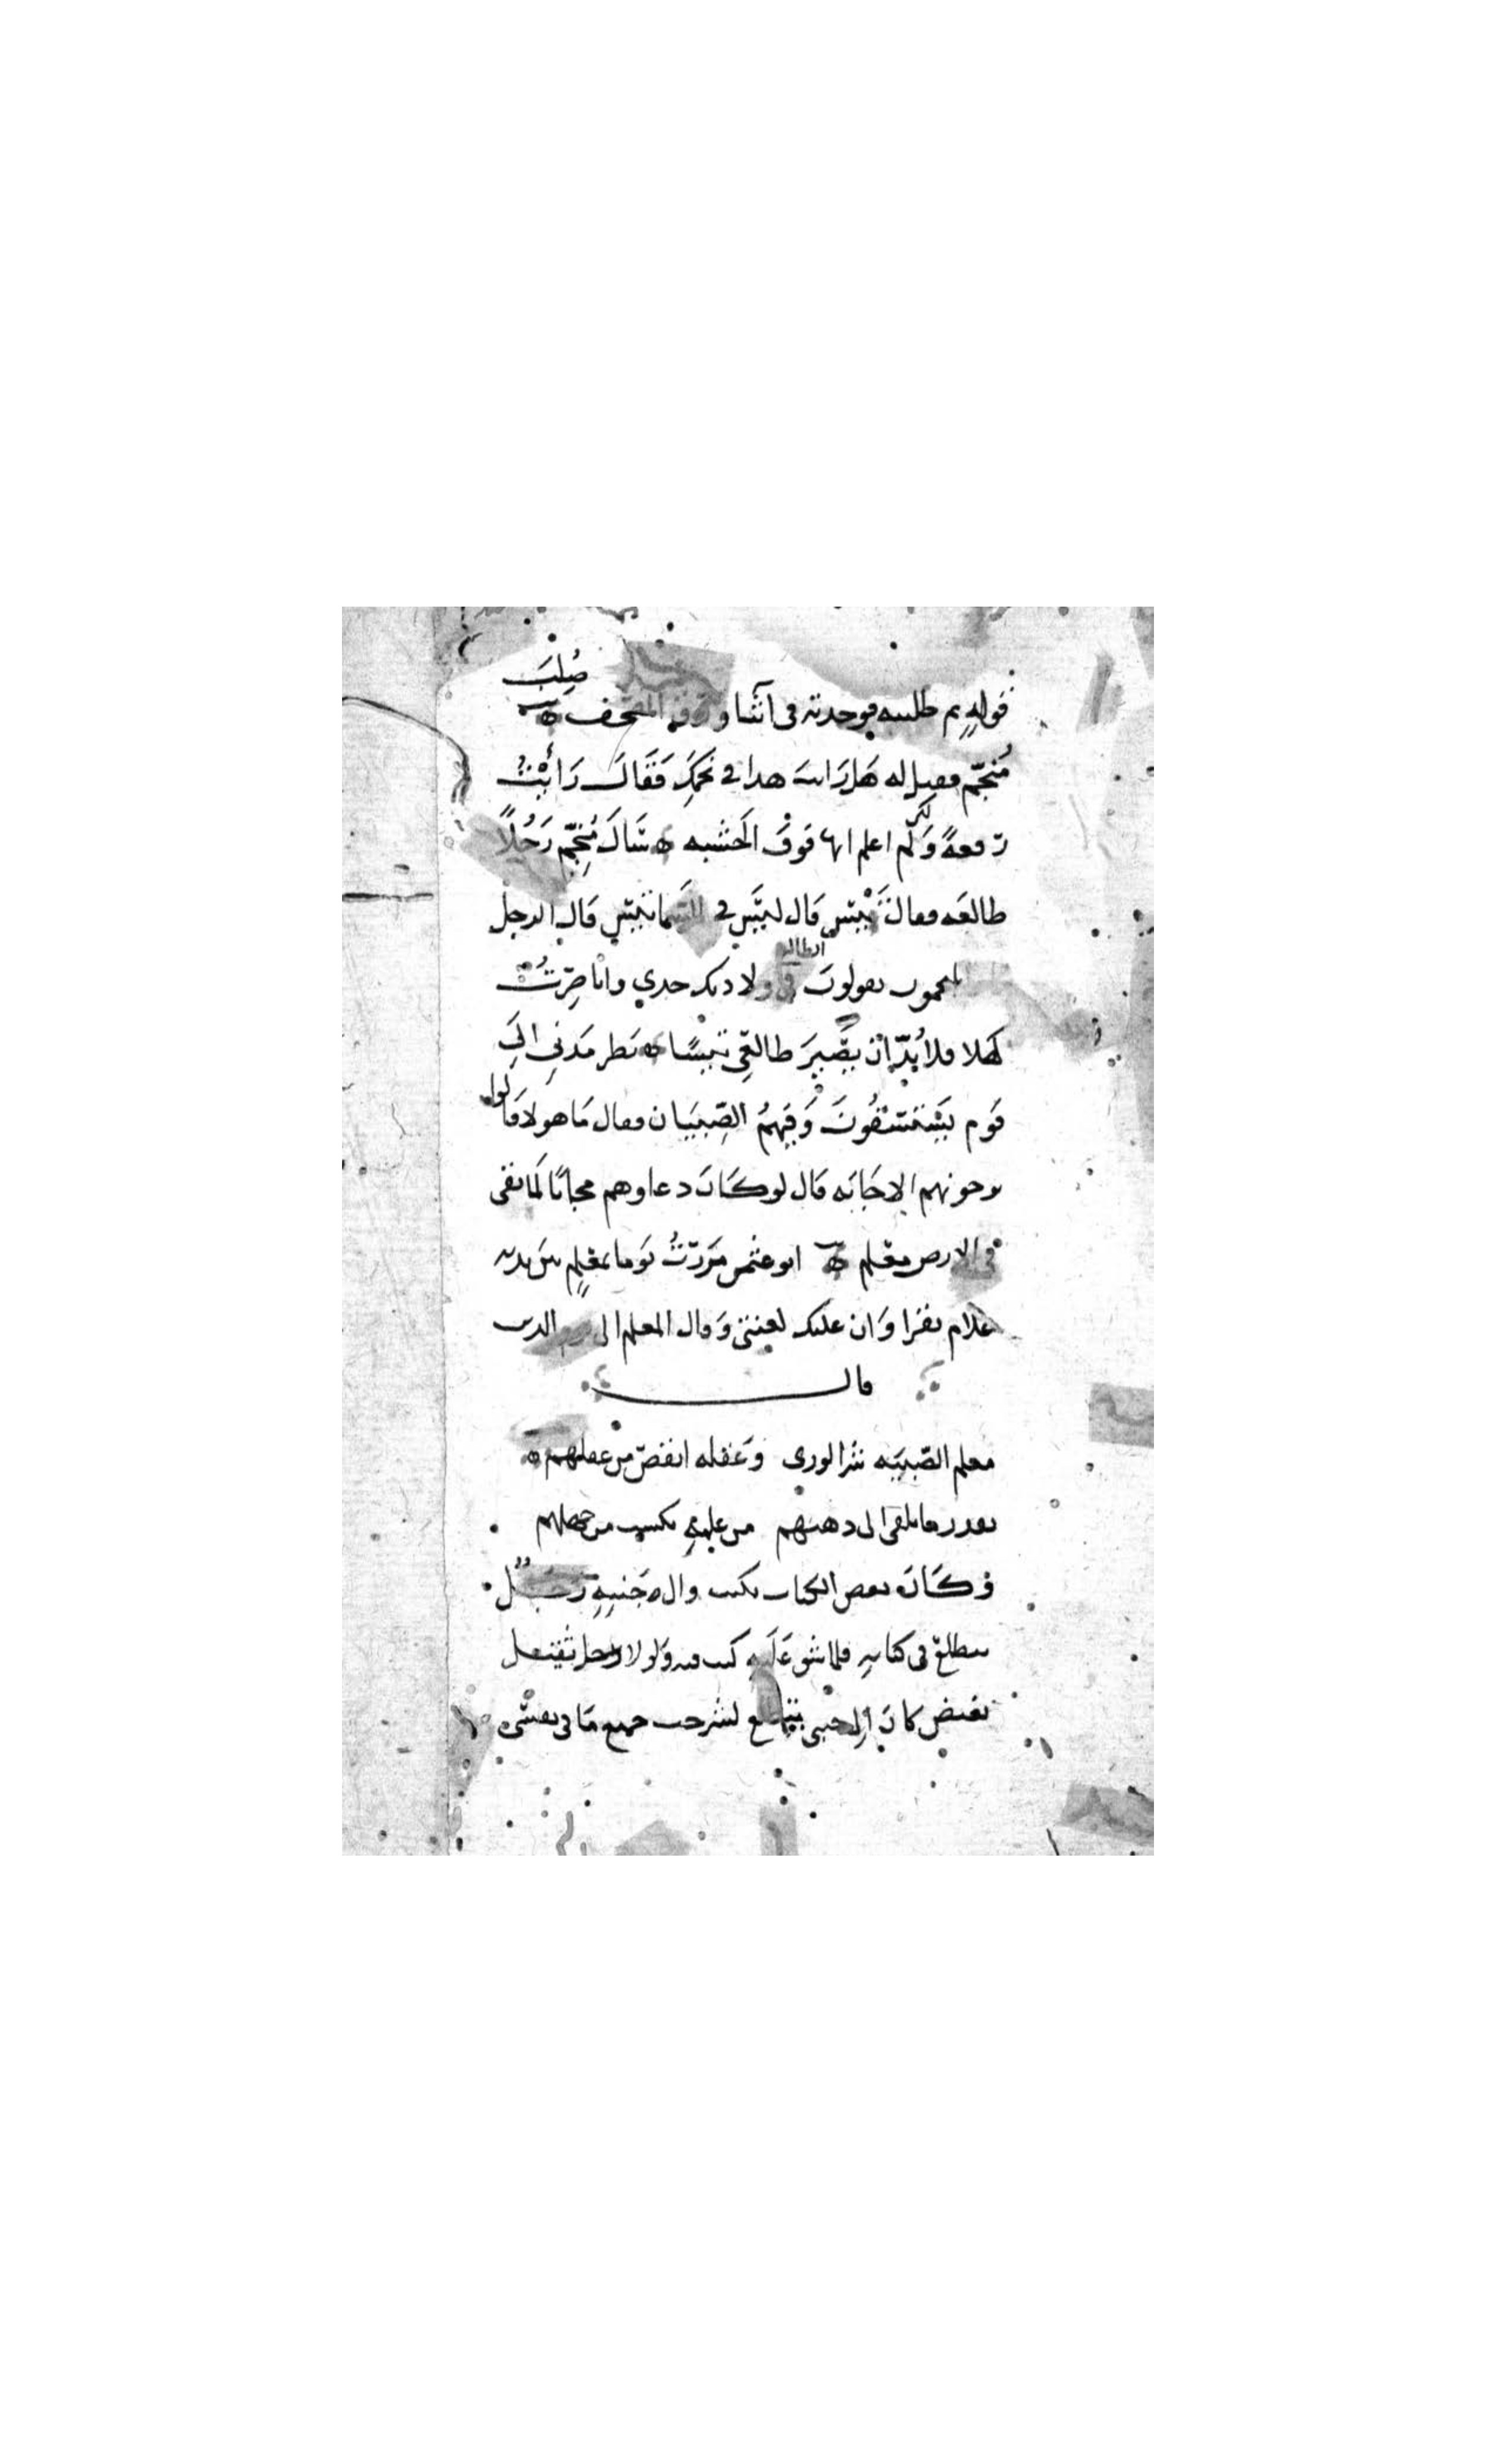 قوله ثم طلبته فوجدته في أثناء ورق المصحف ه صُلِبَ
مُنجّم فقيل له هَل رَأيت هذا في نجمِكَ فَقَالَ رَأَيْتُ
رفعةً وَلكن لم اعلم انها فوقَ الخَشبه ه سَالَ مُنَجِّم رَجُلاً
طالعَه فقال تَيْس قال ليسَ في السَّما تيس قال الرجل
المنجمون يقولون في الطالع ولادتك جدي وانا صِرْتُ
كهلا فلا بُدّ ان يَصِيرَ طالعي تَيْسًا ه نظر مَدَني الَى
قَوم يَسْتَسْقُونَ وَفِيهمُ الصِّبيَان فقال مَا هولا قالوا
يرجونهم الاجَابَه قال لو كَانَ دعاوهم مجابًا لَما بقى
في الارض معَلم ه ابو عثمن مَرَرْتُ يَومًا بمعَلِّمٍ بين يديه
غلام يقرا وَان عليك لعنتي وَقال المعلم الى يوم الدين
قال
معلم الصّبيَه شرّ الورى وَعَقله انقصُ من عقلهم ه
بقدر ما يلقى الى ذهنهم من علمِهِ يكسب من جهلهم
وَكَانَ بعض الكتاب يكتب والى جَنبِهِ رَجُل
يتطلع في كتابهِ فلما شق عَلَيهِ كتب فيه وَلولا رجل ثَقيل
بغيض كان الى جنبي يتطلع لشرحت جميع مَا في نفسي